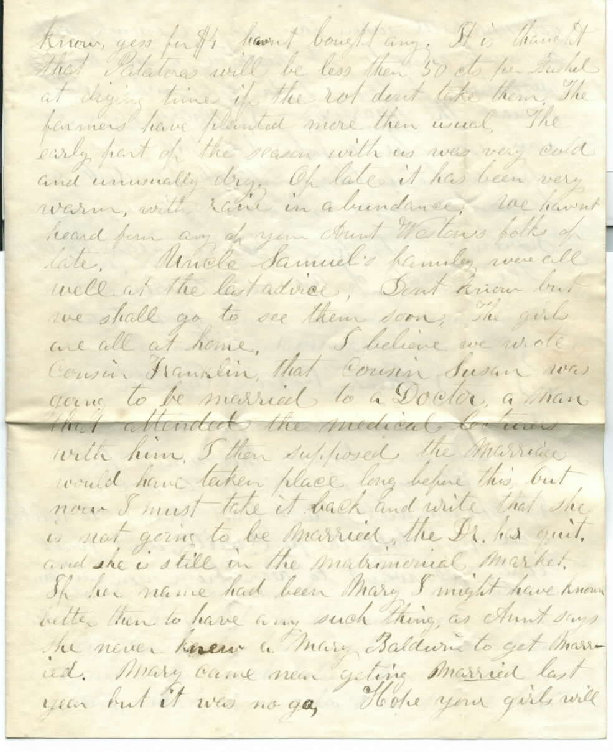 know, yess for $4 havnt bought any. It is thought
that Patatoes will be less then 50 cts per bushel
at diging time if the rot dont take them. The
farmers have planted more then usual. The
early part of the season with us was very cold
and unusually dry. Of late it has been very
warm, with rain in abundance. We havnt
heard from any of your Aunt Weston's folk of
late. Uncle Samuel's family were all
well at the last advice. Dont know but
we shall go to see them soon. The girls
are all at home. I believe we wrote
Cousin Franklin, that Cousin Susan was
going to be married to a Doctor, a man
that attended the medical lectures
with him. I then supposed the Marriage
would have taken place long before this, but
now I must take it back and write that she
is not going to be Married, the Dr. has quit.
and she is still in the matrimonial Market.
If her name had been Mary I might have known
better then to have any such thing, as Aunt says
she never knew a Mary Baldwin to get Marr-
ied. Mary came near geting Married last
year but it was no go, Hope your girls will